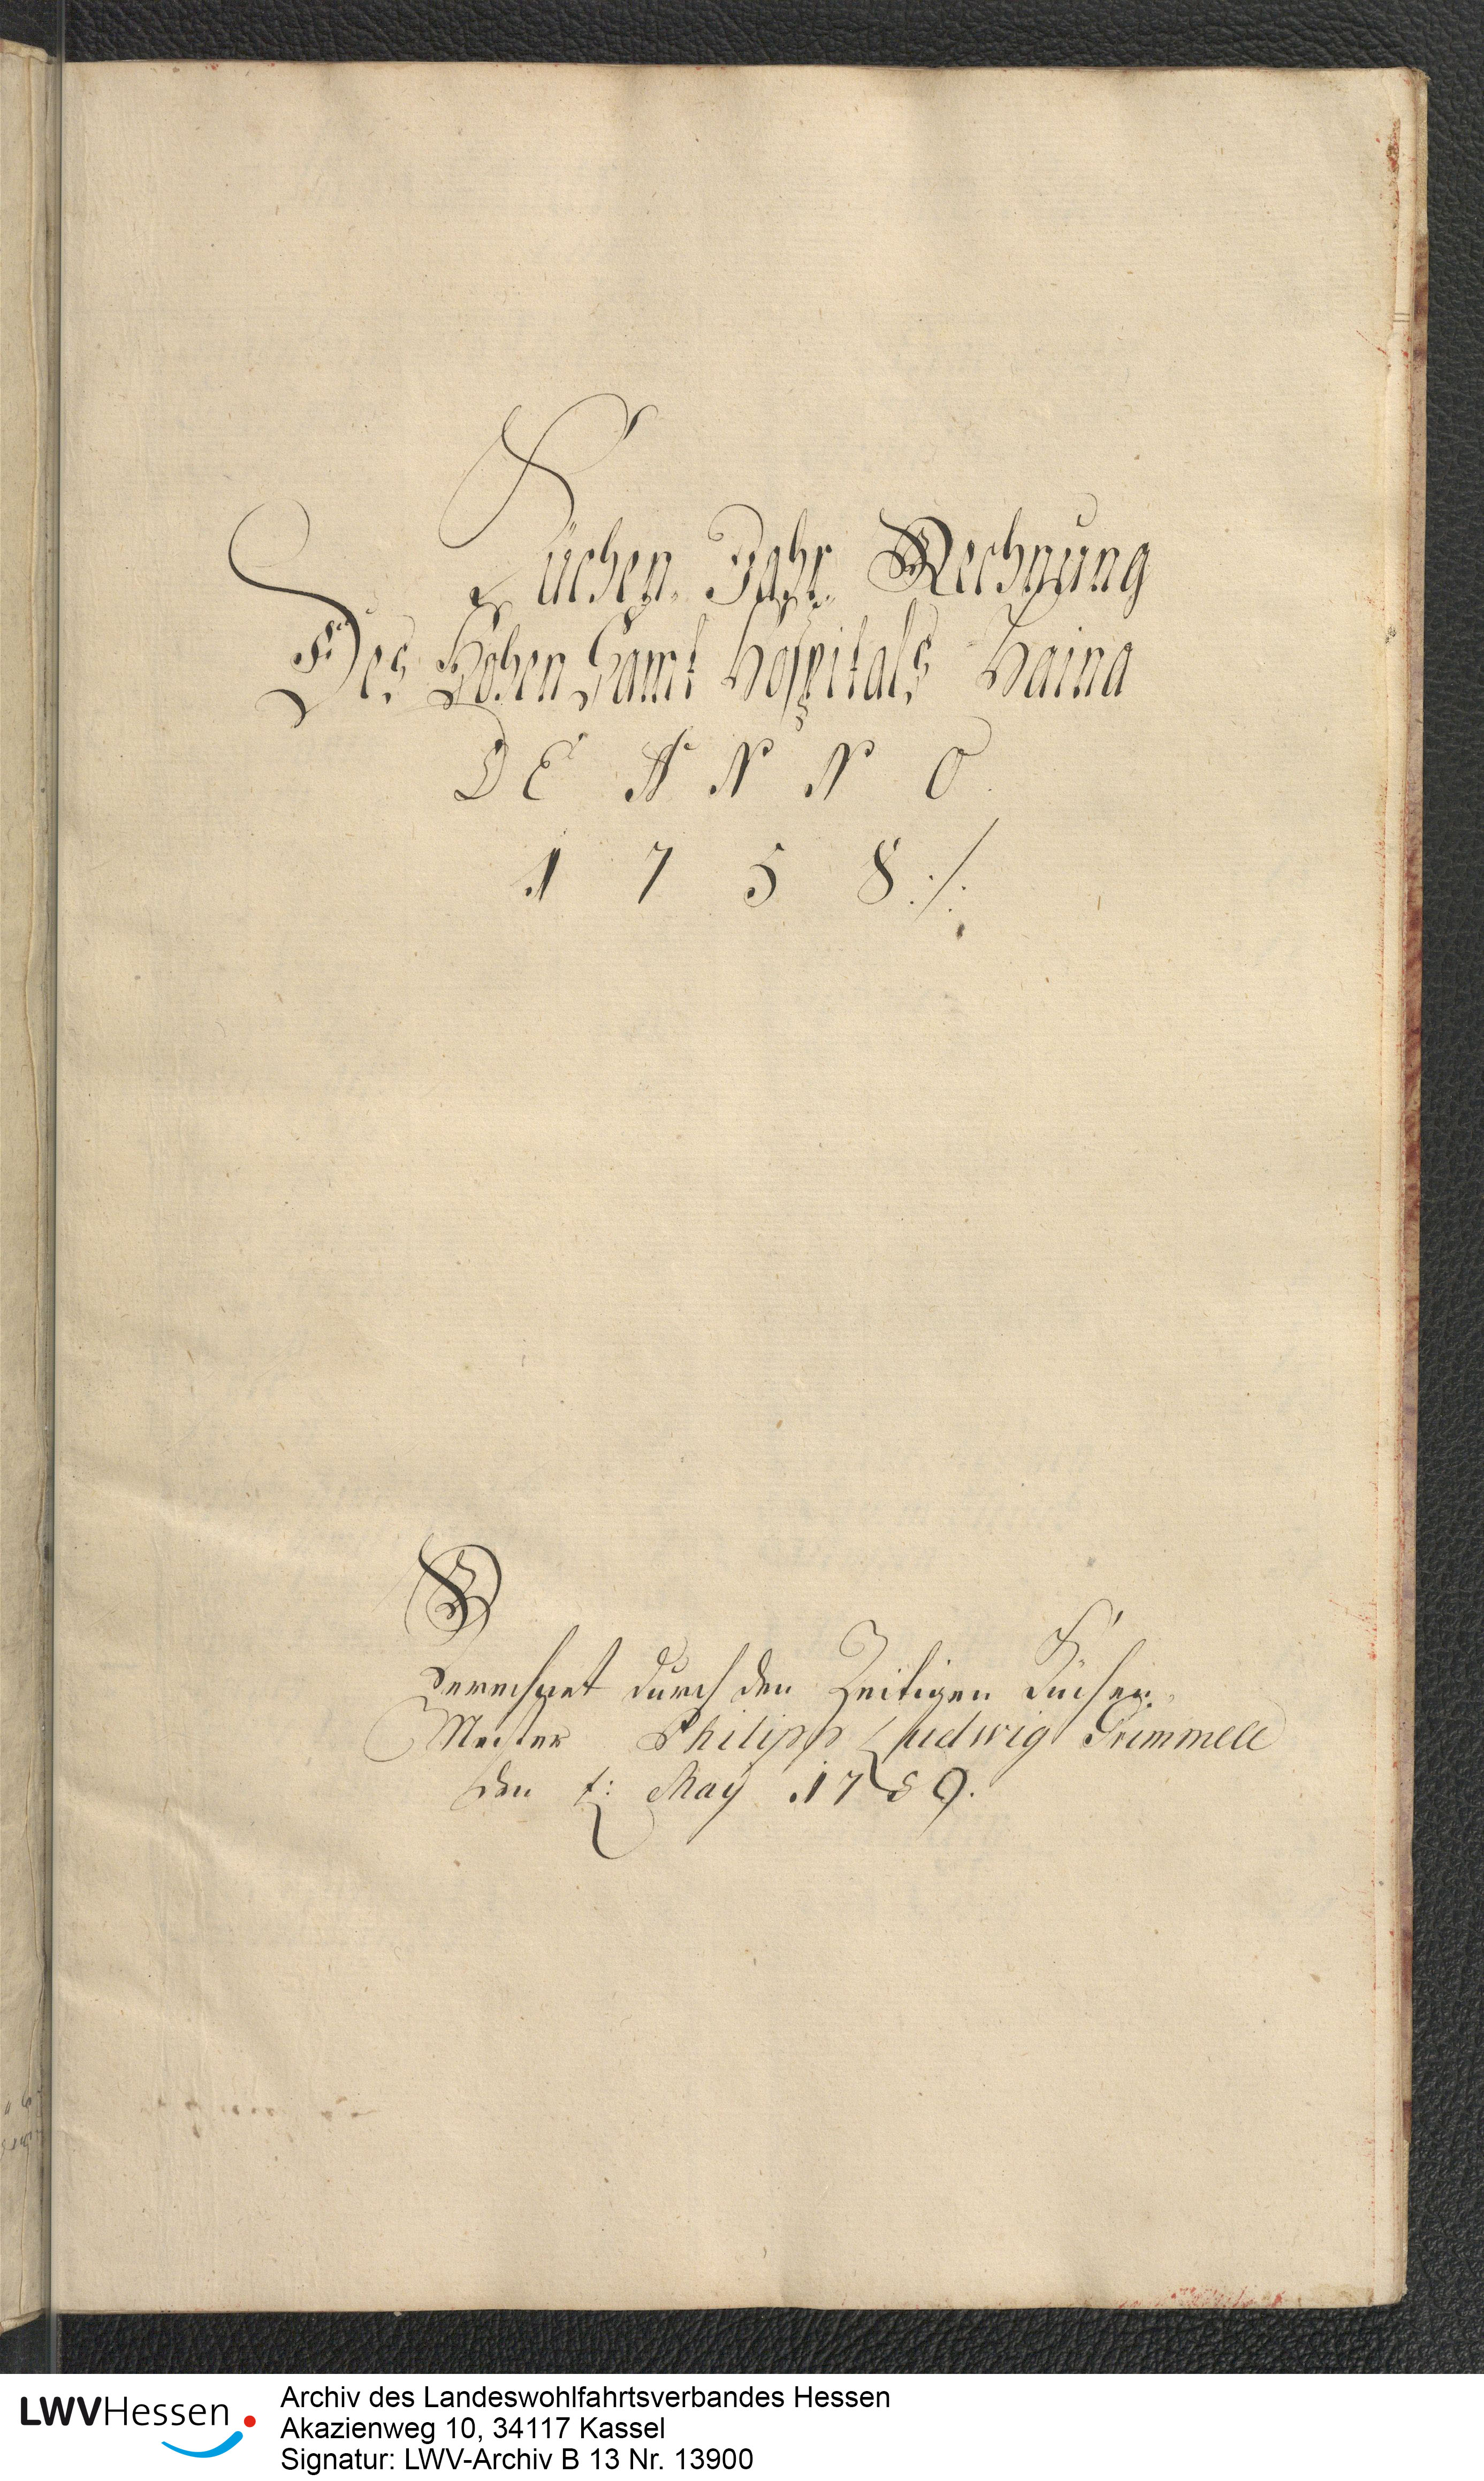 Küchen Jahr Rechnung
Des Hohen Samt Hospitals Haina
DE ANNO
1758 ./.
Berechnet durch den Zeitigen Küchen-
Meister Philipp Ludwig Grimmell
den t: May 1759.
LWVHessen
Archiv des Landeswohlfahrtsverbandes Hessen
Akazienweg 10, 34117 Kassel
Signatur: LWV-Archiv B 13 Nr. 13900